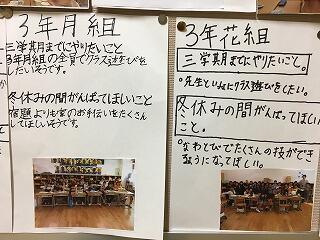 3年月組
三学期までにやりたいこと
3年月組の全員でクラス遊びを
したいそうです。
冬休みの間がんばってほしいこと
宿題よりも家のお手伝いをたくさん
してほしいそうです。
3年花組
三学期までにやりたいこと。
・先生といっしょにクラス遊びをしたい。
冬休みの間がんばってほしい
こと。
・なわとびでたくさんの技ができ
るようになってほしい。